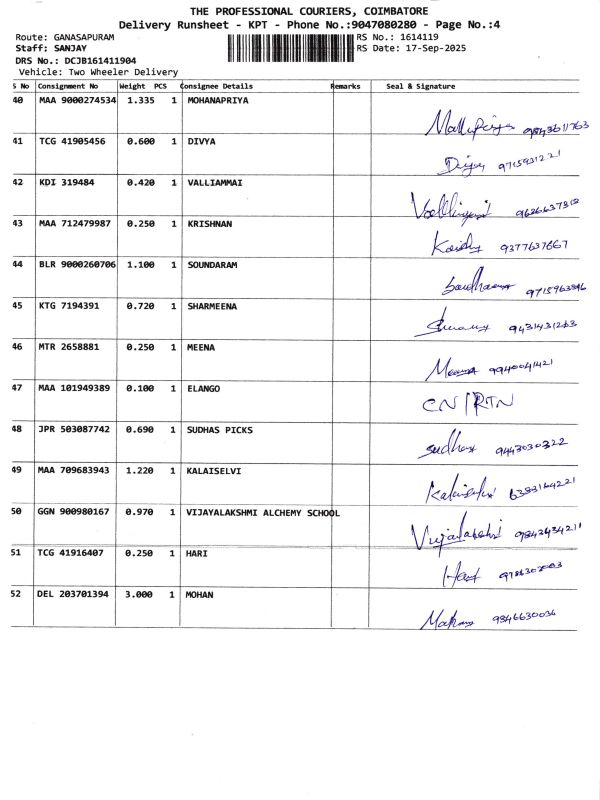 THE PROFESSIONAL COURIERS, COIMBATORE
Delivery Runsheet - KPT - Phone No.:9047080280 - Page No.:4
Route: GANASAPURAM RS No.: 1614119
Staff: SANJAY RS Date: 17-Sep-2025
DRS No.: DCJB161411904
Vehicle: Two Wheeler Delivery
S No Consignment No Weight PCS Consignee Details Remarks Seal & Signature
40 MAA 9000274534 1.335 1 MOHANAPRIYA
41 TCG 41905456 0.600 1 DIVYA 9715931221
42 KDI 319484 0.420 1 VALLIAMMAI 9626637312
43 MAA 712479987 0.250 1 KRISHNAN 9377637667
44 BLR 9000260706 1.100 1 SOUNDARAM
45 KTG 7194391 0.720 1 SHARMEENA
46 MTR 2658881 0.250 1 MEENA Meena 9940041421
47 MAA 101949389 0.100 1 ELANGO CN/RTN
48 JPR 503087742 0.690 1 SUDHAS PICKS Sudhas 9443030322
49 MAA 709683943 1.220 1 KALAISELVI Kalaiselvi 6383164221
50 GGN 900980167 0.970 1 VIJAYALAKSHMI ALCHEMY SCHOOL 9842434211
51 TCG 41916407 0.250 1 HARI
52 DEL 203701394 3.000 1 MOHAN 9846630036